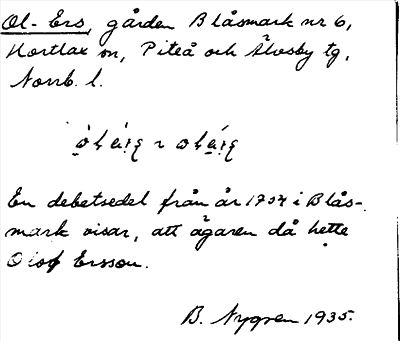 Ol-Ers, gården Blåsmark nr 6,
Hortlax sn, Piteå och Älvsby tg,
Norrb. l.
En debetsedel från år 1737 i Blås-
mark visar, att ägaren då hette
Olof Ersson.
B. Nygren 1935.